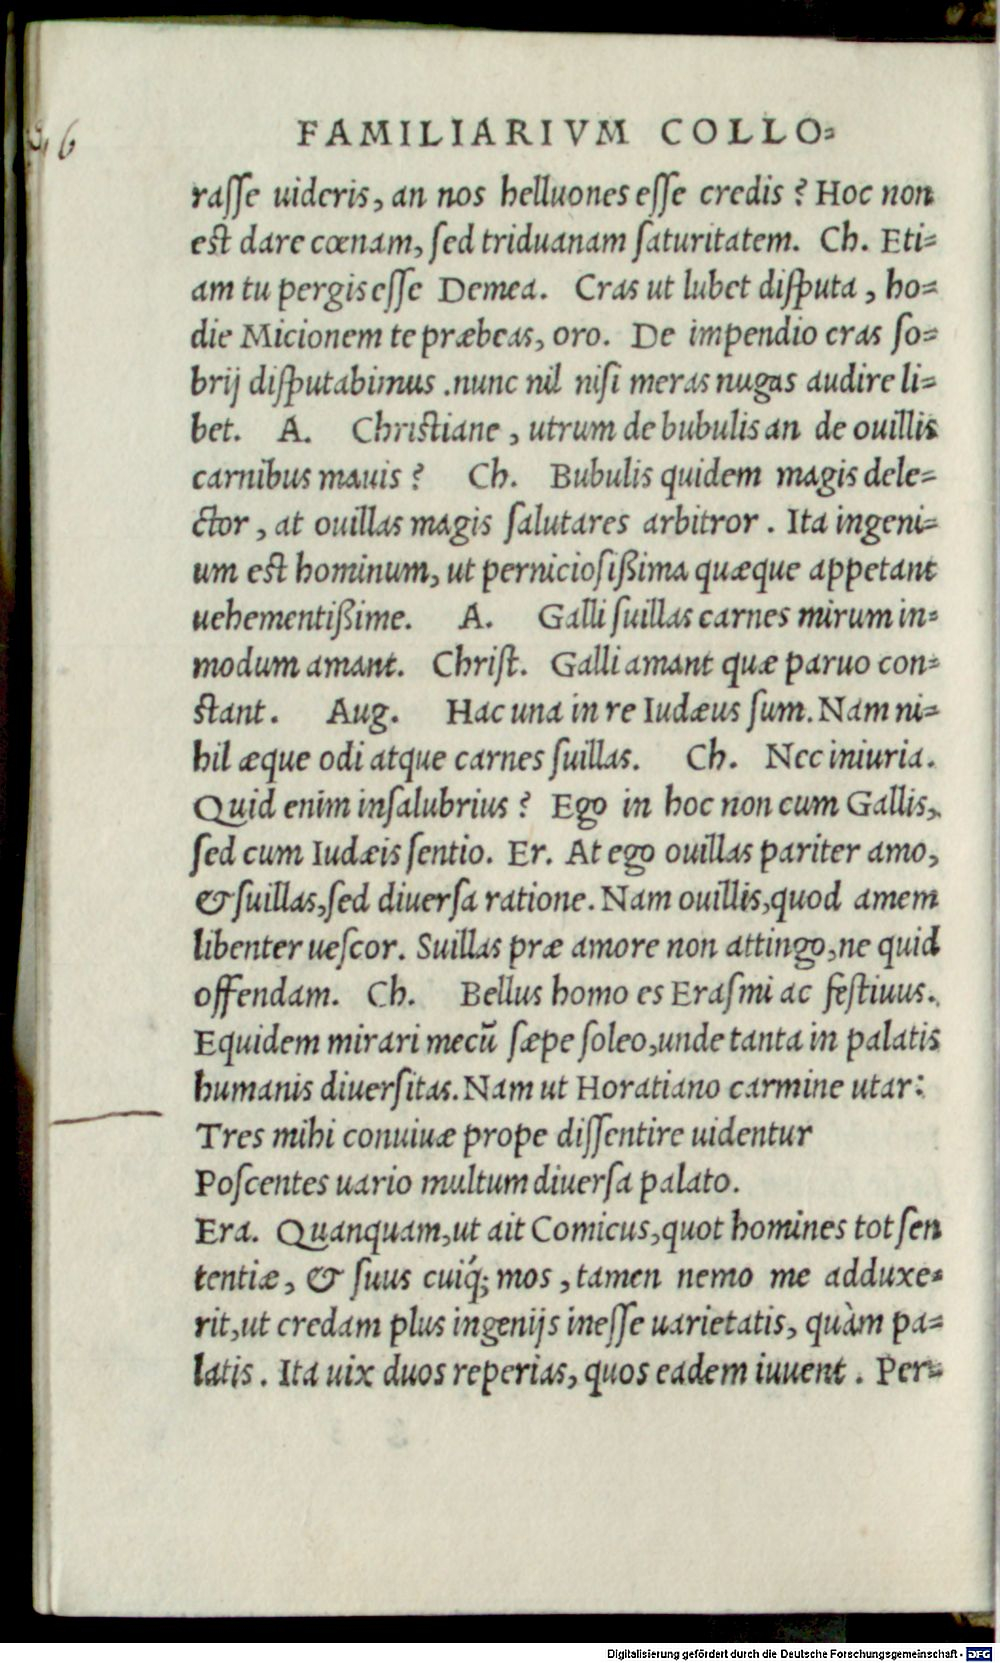 FAMILIARIVM COLLO-
rasse uideris, an nos helluones esse credis? Hoc non
est dare cœnam, sed triduanam saturitatem. Ch. Eti-
am tu pergis esse Demea. Cras ut lubet disputa, ho-
die Micionem te præbeas, oro. De impendio cras so-
brij disputabimus .nunc nil nisi meras nugas audire li-
bet. A. Christiane, utrum de bubulis an de ouillis
carnibus mauis? Ch. Bubulis quidem magis dele-
ctor, at ouillas magis salutares arbitror. Ita ingeni-
um est hominum, ut perniciosißima quæque appetant
uehementißime. A. Galli suillas carnes mirum in-
modum amant. Christ. Galli amant quæ paruo con-
stant. Aug. Hac una in re Iudæus sum. Nam ni-
hil æque odi atque carnes suillas. Ch. Nec iniuria.
Quid enim insalubrius? Ego in hoc non cum Gallis,
sed cum Iudæis sentio. Er. At ego ouillas pariter amo,
& suillas, sed diuersa ratione. Nam ouillis, quod amem
libenter uescor. Suillas præ amore non attingo, ne quid
offendam. Ch. Bellus homo es Erasmi ac festiuus.
Equidem mirari mecū sæpe soleo, unde tanta in palatis
humanis diuersitas. Nam ut Horatiano carmine utar:
Tres mihi conuiuæ prope dissentire uidentur
Poscentes uario multum diuersa palato.
Era. Quanquam, ut ait Comicus, quot homines tot sen
tentiæ, & suus cuiq́; mos, tamen nemo me adduxe-
rit, ut credam plus ingenijs inesse uarietatis, quàm pa-
latis. Ita uix duos reperias, quos eadem iuuent. Per-
Digitalisierung gefördert durch die Deutsche Forschungsgemeinschaft - DFG